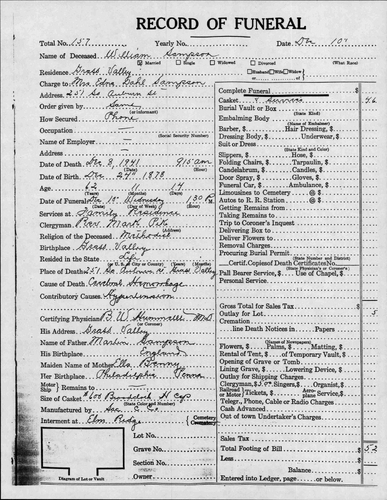 RECORD OF FUNERAL
Total No. 157 Yearly No. Date Dec 10
Name of Deceased William Sampson
Married Single Widowed Divorced (What Race)
Residence Grass Valley Husband Wife Widow
Charge to Mrs Edna Sampson
Address 251 So Auburn St
Order given by Same
How Secured Phone
Occupation
(Social Security Number)
Name of Employer
Address
Date of Death Dec 8, 1941 9:15 am
Date of Birth Dec 24th 1878
Age 62 11 14
(Years) (Months) (Days)
Date of Funeral Dec 10 Wednesday 1:30 PM
Services at Family Residence
Clergyman Rev. Mark
Religion of the Deceased Methodist
Birthplace Grass Valley
Resided in the State Life
Place of Death 251 So Auburn St Grass Valley
Cause of Death Cerebral Hemorrhage
Contributory Causes Hypertension
Certifying Physician B.W. Hummelt MD
His Address Grass Valley
Name of Father Martin Sampson
His Birthplace England
Maiden Name of Mother Ella Benny
Her Birthplace Philadelphia Penna
Motor Ship Remains to
Size of Casket
(State Color and Number)
Manufactured by
Interment at Elm Ridge Cemetery Crematory
Lot No.
Grave No.
Section No.
Owner
Diagram of Lot or Vault
Complete Funeral
Casket & Services
Burial Vault or Box
(State Kind)
Embalming Body
(Name of Embalmer)
Barber, $ Hair Dressing, $
Dressing Body, $ Underwear, $
Suit or Dress
(State Kind and Color)
Slippers, $ Hose, $
Folding Chairs, $ Tarpaulin, $
Candelabrum, $ Candles, $
Door Spray, $ Gloves, $
Funeral Car, $ Ambulance, $
Limousines to Cemetery @ $
Autos to R. R. Station @ $
Getting Remains from
Taking Remains to
Trip to Coroner's Inquest
Delivering Box to
Deliver Flowers to
Removal Charges
Procuring Burial Permit
(State Number and District)
Certif. Copies of Death Certificates No.
(State Physician's or Coroner's)
Pall Bearer Service, $ Use of Chapel, $
Personal Service
Gross Total for Sales Tax
Outlay for Lot 5
Cremation
line Death Notices in Papers
(Names of Newspapers)
Flowers, $ Palms, $ Matting, $
Rental of Tent, $ of Temporary Vault, $
Opening of Grave or Tomb
Lining Grave, $ Lowering Device, $
Outlay for Shipping Charges
Clergyman, $ Singers, $ Organist, $
Tickets, $ Service, $
Telegr., Phone, Cable or Radio Charges
Cash Advanced
Out of town Undertaker's Charges
Sales Tax
Total Footing of Bill 52
Less
Balance
Entered into Ledger, page or below.